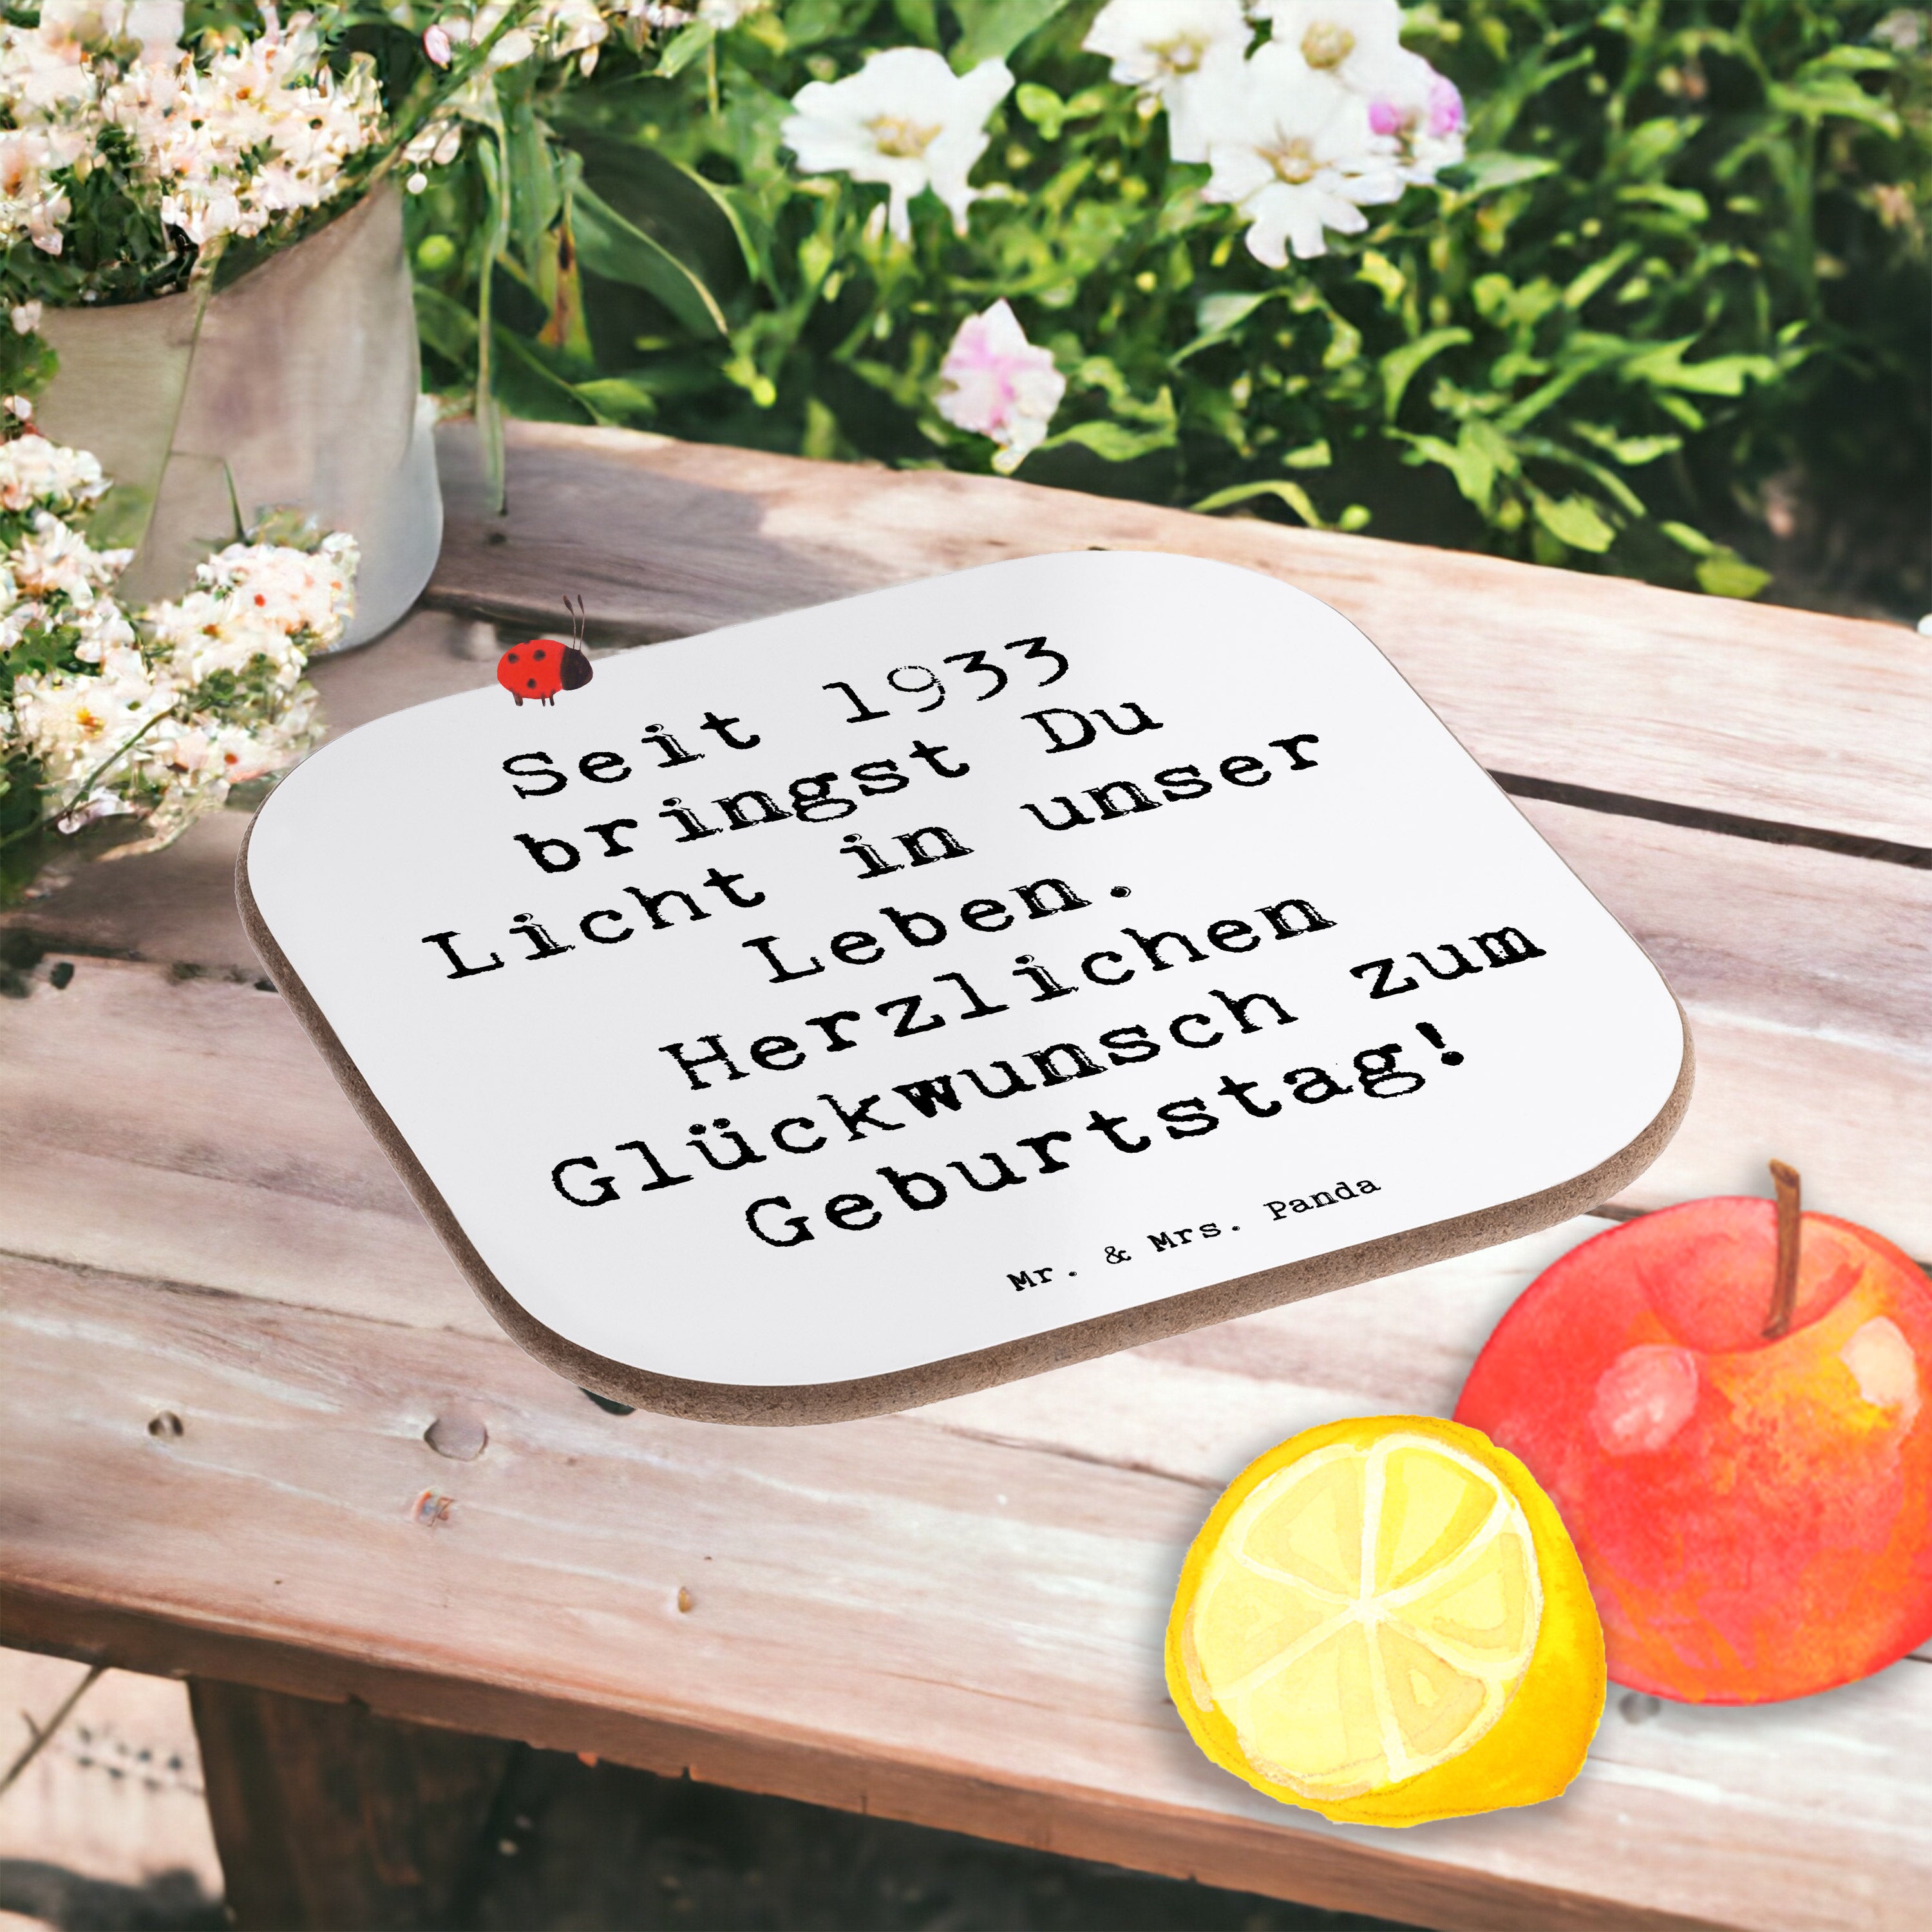 Seit 1933
bringst Du
Licht in unser
Leben.
Herzlichen
Glückwunsch zum
Geburtstag!
Mr. & Mrs. Panda